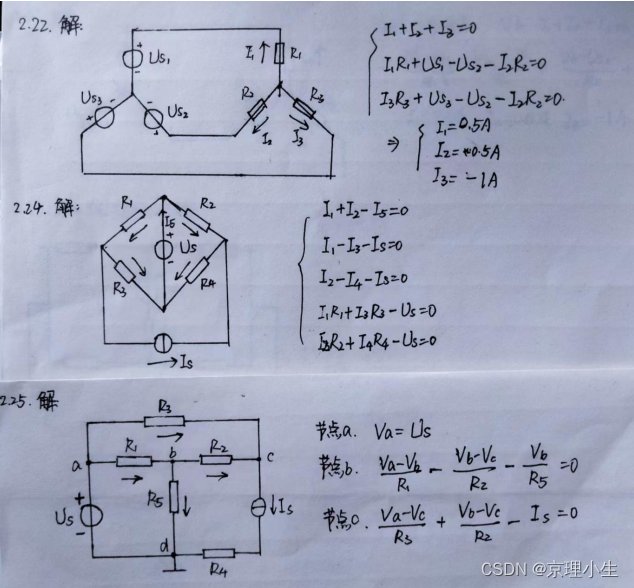 2.22. 解:
Us₁
I₁
R₁
Us₃
Us₂
R₂
R₃
I₂
I₃
I₁+I₂+I₃=0
I₁R₁+Us₁-Us₂-I₂R₂=0
I₃R₃+Us₃-Us₂-I₂R₂=0.
⇒
I₁=0.5A
I₃=-1A
2.24. 解:
R₁
R₂
I₅
Us
R₃
R₄
Is
I₁+I₂-I₅=0
I₁-I₃-Is=0
I₂-I₄-Is=0
I₁R₁+I₃R₃-Us=0
R₂+I₄R₄-Us=0
2.25. 解
R₃
a
R₁
b
R₂
c
Us
R₅
Is
d
R₄
节点a. Va=Us
节点b. (Va-Vb)/R₁ - (Vb-Vc)/R₂ - Vb/R₅ =0
节点c. (Va-Vc)/R₃ + (Vb-Vc)/R₂ - Is=0
CSDN @京理小生